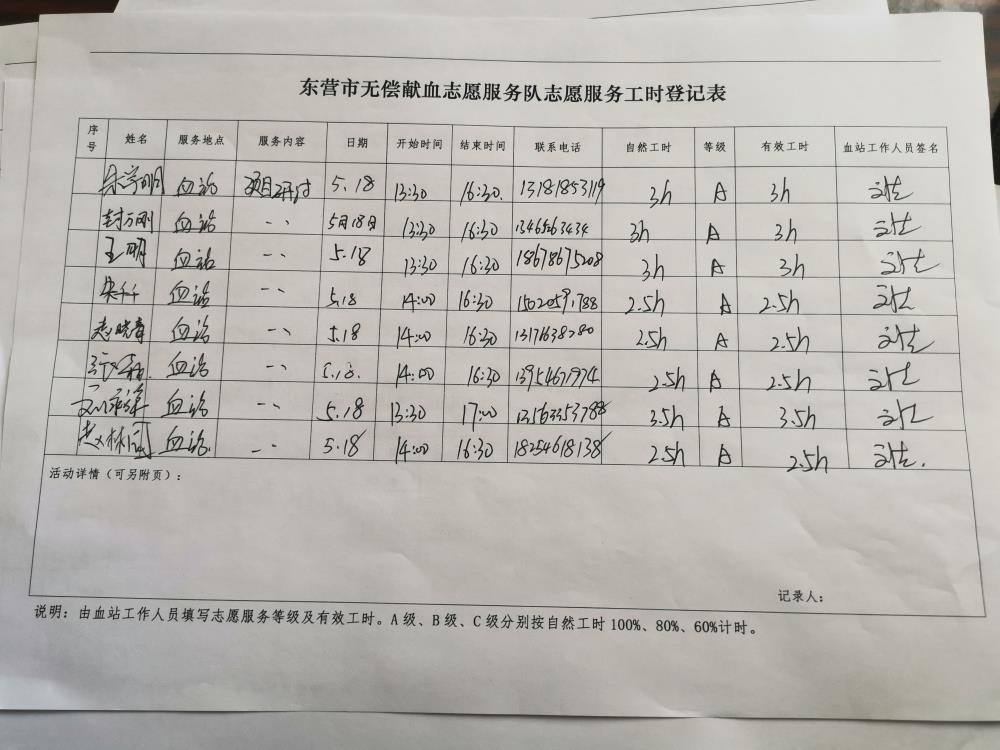 东营市无偿献血志愿服务队志愿服务工时登记表
序号 姓名 服务地点 服务内容 日期 开始时间 结束时间 联系电话 自然工时 等级 有效工时 血站工作人员签名
血站 项目研讨 5.18 13:30 16:30. 13181853119 3h A 3h
封万刚 血站 5月18日 13:30 16:30 13465163434 3h A 3h
王明 血站 5.18 13:30 16:30 18678675208 3h A 3h
血站 5.18 14:00 16:30 15020591788 2.5h A 2.5h
血站 5.18 14:00 16:30 13176382780 2.5h A 2.5h
血站 14:00 16:30 13954671974 2.5h A 2.5h
血站 5.18 13:30 17:00 13563353788 3.5h A 3.5h
赵林国 血站 5.18 14:00 16:30 18254618138 2.5h A 2.5h
活动详情（可另附页）：
记录人：
说明：由血站工作人员填写志愿服务等级及有效工时。A级、B级、C级分别按自然工时100%、80%、60%计时。